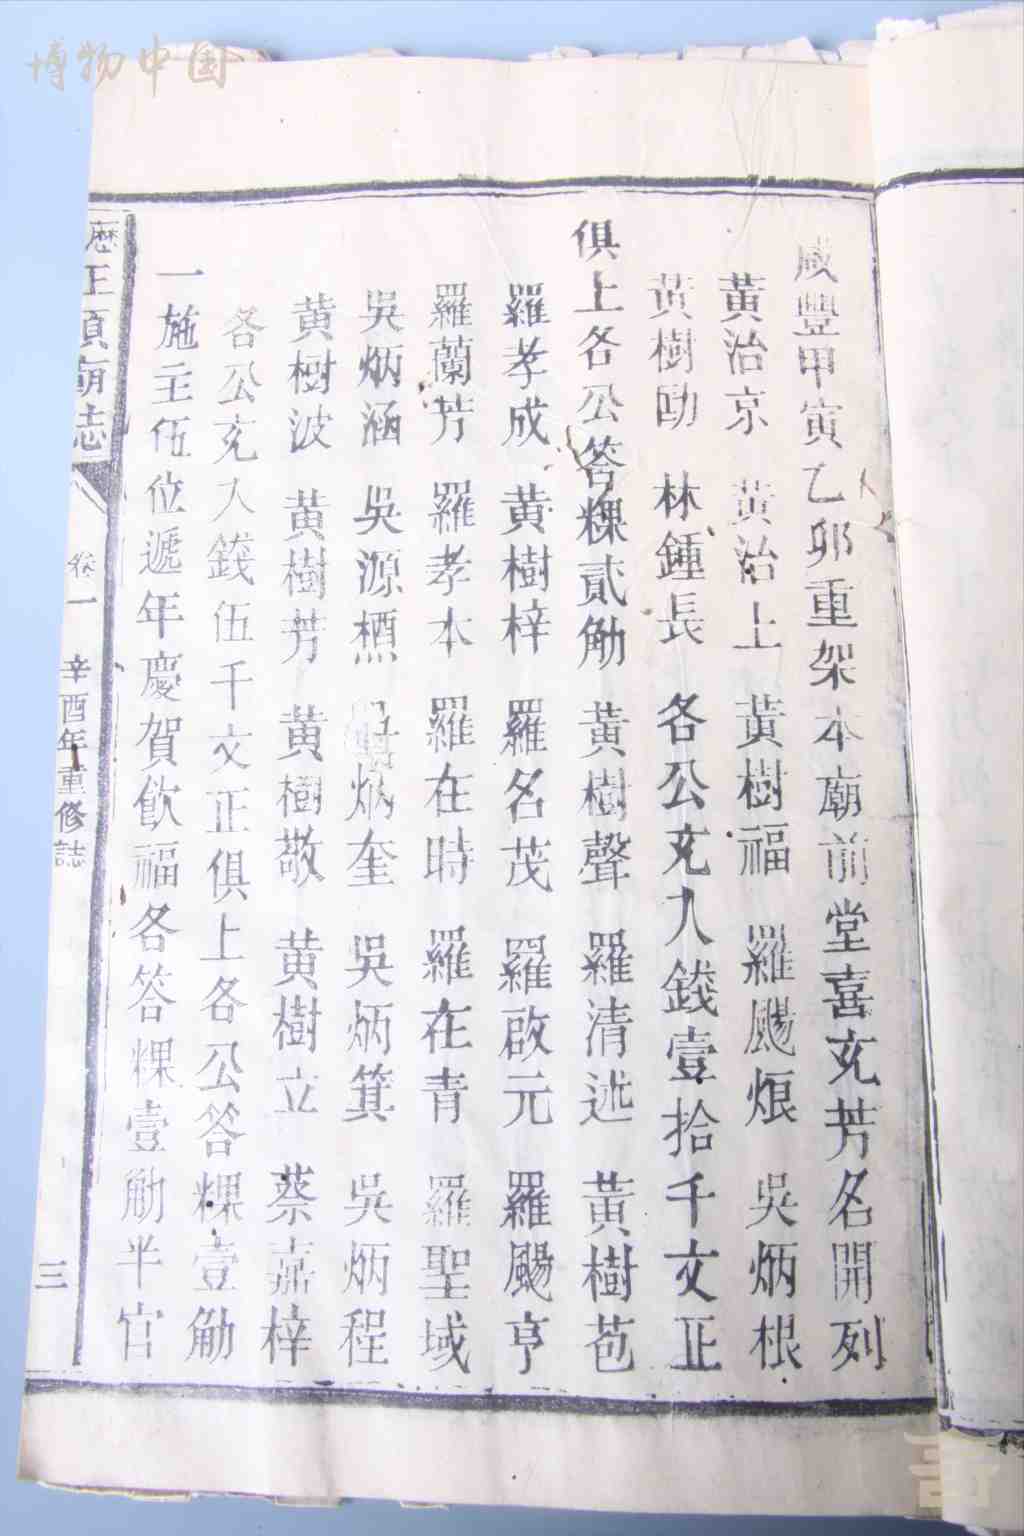 博物中国
咸豐甲寅乙卯重架本廟前堂喜充芳名開列
黃治京 黃治上 黃樹福 羅颺烺 吳炳根
黃樹勛 林鍾長 各公充入錢壹拾千文正
俱上各公答粿貳觔 黃樹聲 羅清述 黃樹苞
羅孝成 黃樹梓 羅名茂 羅啟元 羅颺亨
羅蘭芳 羅孝本 羅在時 羅在青 羅聖域
吳炳涵 吳源 吳炳奎 吳炳箕 吳炳程
黃樹波 黃樹芳 黃樹敬 黃樹立 蔡嘉梓
各公充入錢伍千文正俱上各公答粿壹觔
一施主伍位遞年慶賀飲福各答粿壹觔半官
歷王項廟志 卷一 辛酉年重修誌 三